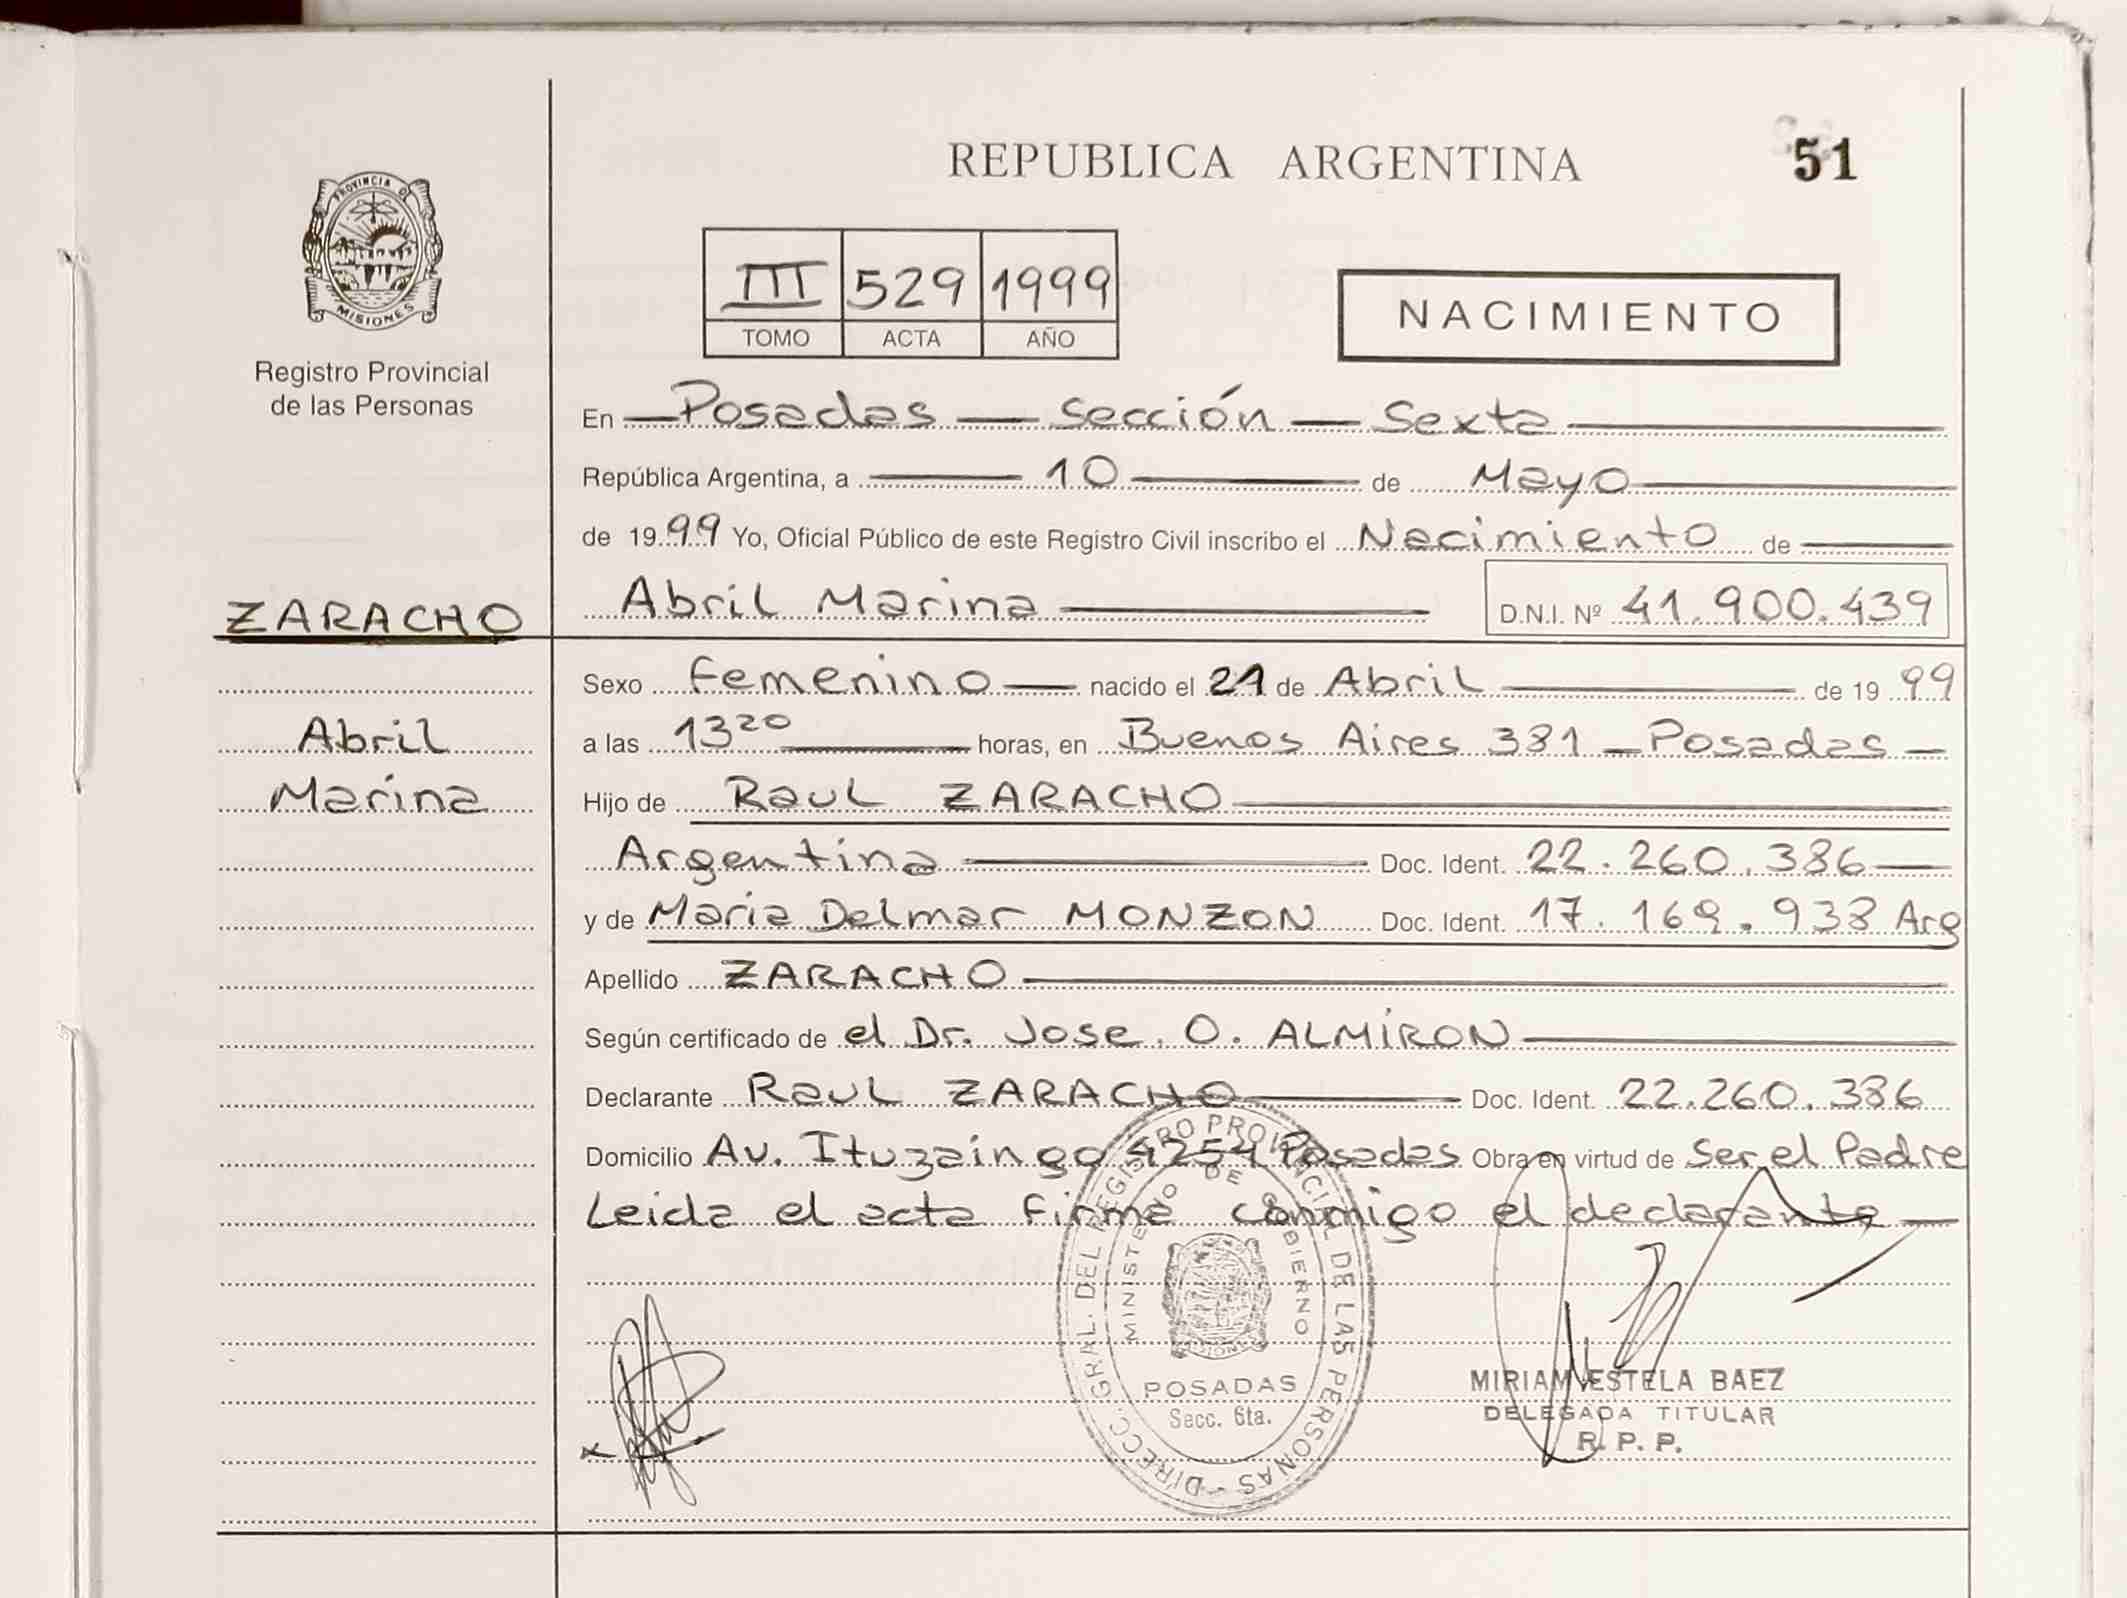 REPUBLICA ARGENTINA
51
PROVINCIA DE
MISIONES
Registro Provincial
de las Personas
III 529 1999
TOMO ACTA AÑO
NACIMIENTO
En Posadas — Sección — Sexta
República Argentina, a 10 de Mayo
de 1999 Yo, Oficial Público de este Registro Civil inscribo el Nacimiento de
ZARACHO
Abril Marina D.N.I. Nº 41.900.439
Sexo Femenino nacido el 21 de Abril de 1999
Abril
a las 13 20 horas, en Buenos Aires 381 - Posadas -
Marina
Hijo de Raul ZARACHO
Argentina Doc. Ident. 22.260.386
y de Maria Delmar MONZON Doc. Ident. 17.169.938 Arg
Apellido ZARACHO
Según certificado de el Dr. Jose. O. ALMIRON
Declarante Raul ZARACHO Doc. Ident. 22.260.386
Domicilio Av. Ituzaingo 4254 Posadas Obra en virtud de Ser el Padre
Leida el acta firma conmigo el declarante
DIRECC. GRAL. DEL REGISTRO PROVINCIAL DE LAS PERSONAS -
MINISTERIO DE GOBIERNO
POSADAS
Secc. 6ta.
MIRIAM ESTELA BAEZ
DELEGADA TITULAR
R. P. P.